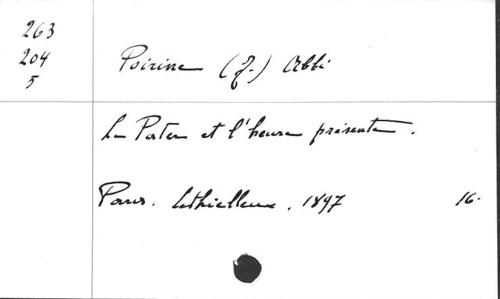 263
204
5
Poirine (J.) Abbé
Le Pater et l'heure présente.
Paris. Lethielleux. 1897 16.